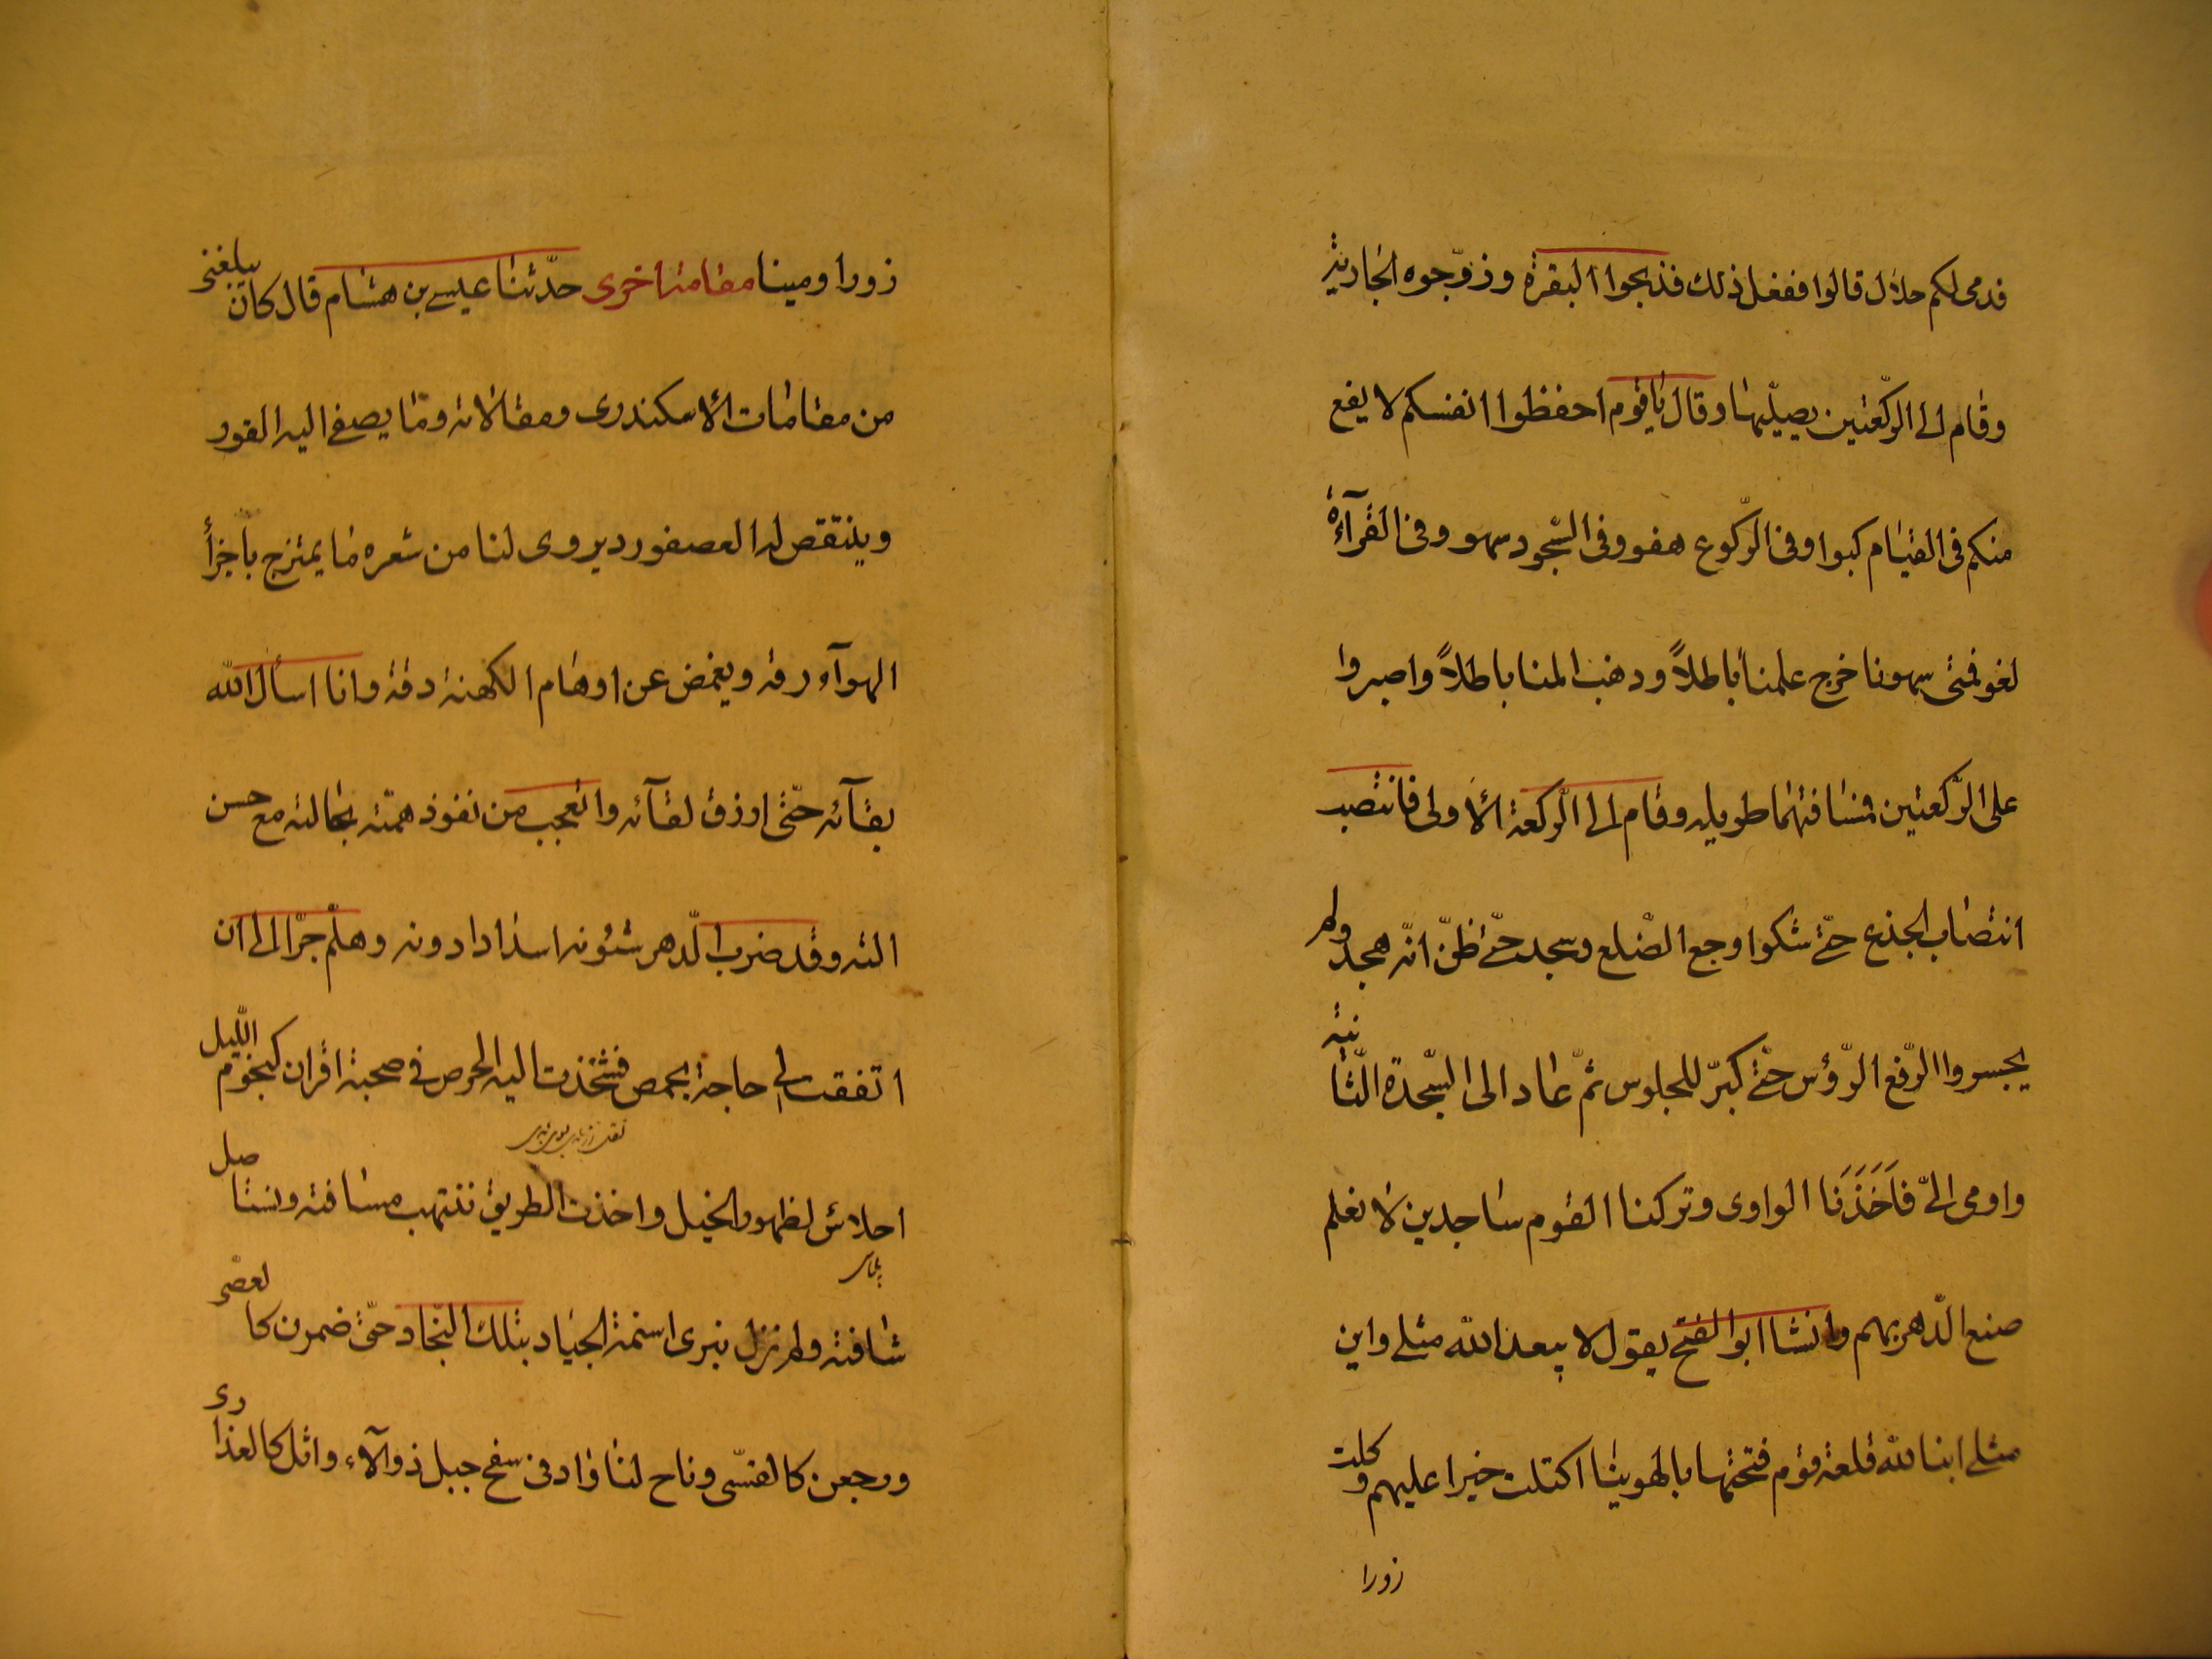 فدمى لكم حلال قالوا ففعل ذلك فذبحوا البقرة وزوّجوه الجارية
وقام الى الرّكعتين يصيلّيهما وقال يا قوم احفظوا انفسكم لا يقع
منكم فى القيام كبوا وفى الرّكوع هفو وفى السّجود سهو وفى القرآءة
لغو فمتى سهونا خرج علمنا باطلاً وذهب المنا باطلاً واصبروا
على الرّكعتين فمسافتهما طويله وقام الى الرّكعة الأولى فانتصب
انتصاب الجذع حتّى شكوا وجع الضّلع وسجد حتّى ظنّ انّه هجد ولم
يجسروا الرّفع الرّؤس حتّى كبرّ للجلوس ثمّ عاد الى السّجدة الثّانية
واومى الىّ فَاَخَذَنَا الوادى وتركنا القوم ساجدين لا نعلم
صنع الدّهر بهم وانشا ابو الفتح يقول لا يبعد الله مثلى واين
مثلى اينا لله قلعة قوم فتحتها بالهوينا اكتلت خيرا عليهم وكلت
زورا
زورا ومينا مقامة اخرى حدّثنا عيسى بن هشام قال كان يبلغنى
من مقامات الأسكندرى ومقالاته وممّا يصغى اليه الفور
وينتقص له العصفور ديروى لنا من شعره ما يمتزج باجزأ
الهوآء رقة ويغمض عن اوهام الكهنة دقة وانا اسأل الله
بقآئه حتّى ارزق لقآئه واتعجب من نفوذ همّته بحالته مع حسن
الته وقد ضرب الدّهر شئونه اسدادا دونه وهلمّ جرّا الى ان
اتفقت لى حاجة بحمص فشحذت اليه الحرص فى صحبة اقران كنجوم اللّيل
احلاس لظهور الخيل واخذت الطريق ننتهب مسافته ونستاصل
شافته ولم نزل نبرى اسنمة الجياد بتلك النّجاد حتّى ضمرن كالعصى
ورجعن كالقسّى وتاح لنا واد فى سفح جبل ذو آلآء واثل كالعذارى